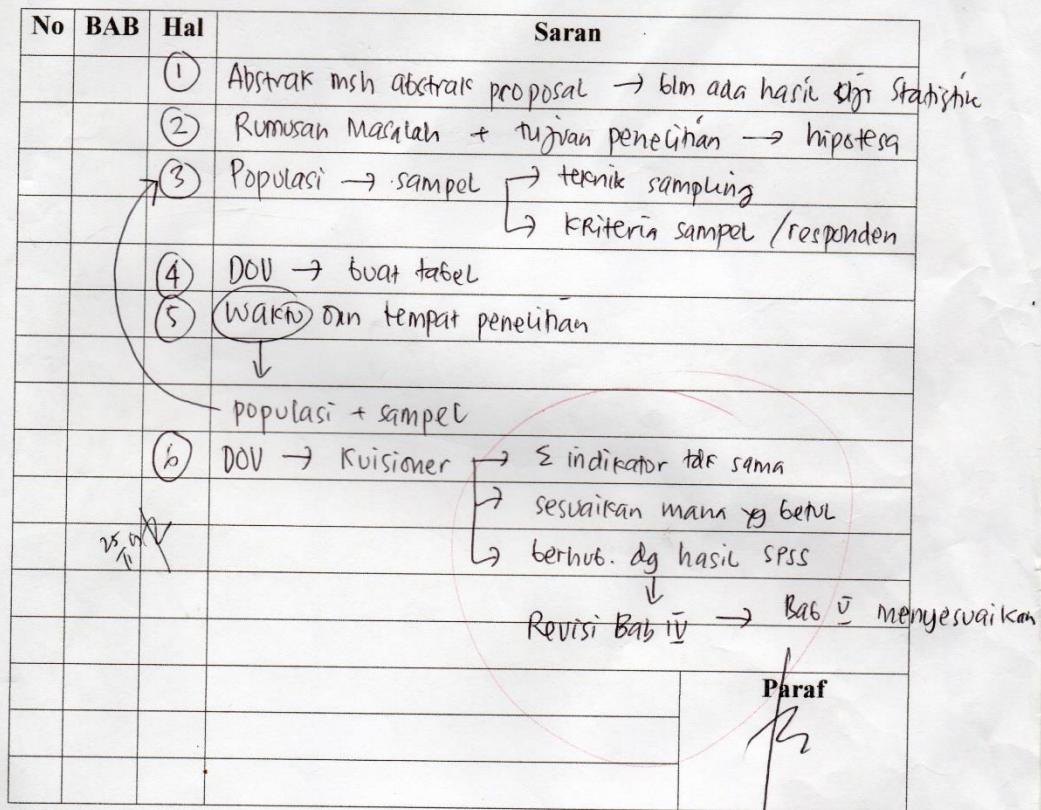 No BAB Hal Saran
① Abstrak msh abstrak proposal → blm ada hasil Statistik
② Rumusan Masalah + tujuan penelitian → hipotesa
③ Populasi → sampel → teknik sampling
→ Kriteria sampel / responden
④ DOV → buat tabel
⑤ Waktu dan tempat penelitian
↓
populasi + sampel
⑥ DOV → Kuisioner → Σ indikator tdk sama
→ sesuaikan mana yg betul
→ berhub. dg hasil SPSS
↓
Revisi Bab IV → Bab V menyesuaikan
Paraf